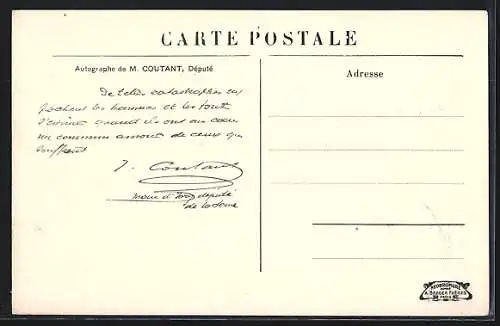 CARTE POSTALE
Autographe de M. COUTANT, Député
Adresse
De telles catastrophes rap
prochent les hommes et les font
s'unir quand ils ont au cœur
un commun amour de ceux qui
souffrent
J. Coutant
maire d'Ivry député
de la Seine
A. BREGER FRÈRES
PARIS